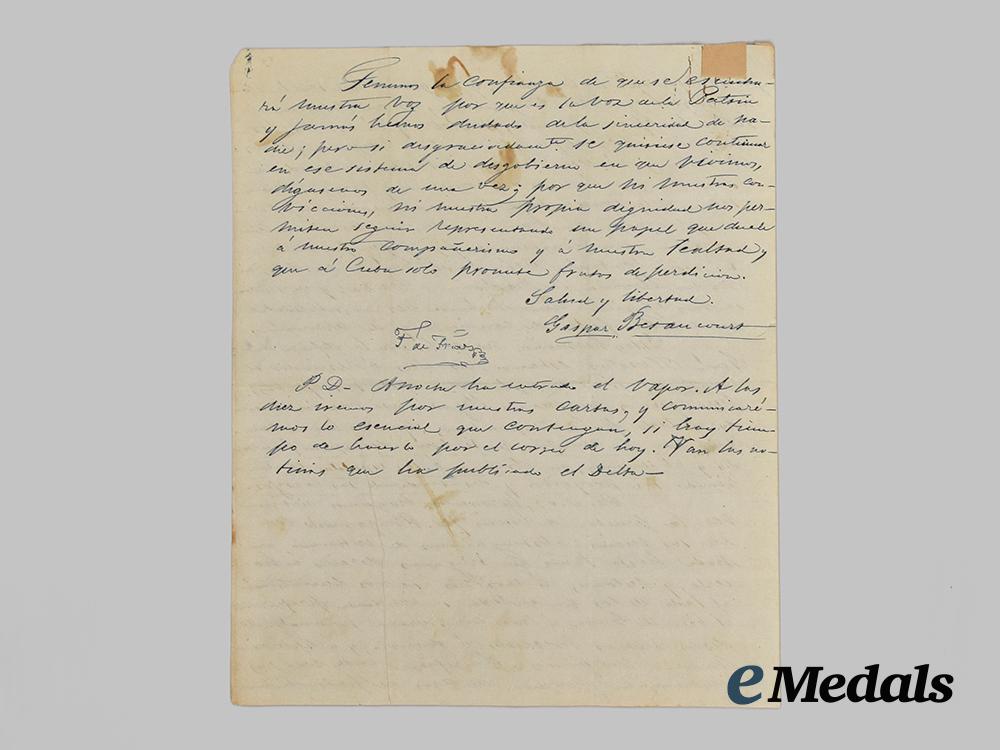 Tenemos la confianza de que se escucha-
rá nuestra voz por que es la voz de la Patria
y jamás hemos dudado de la sinceridad de na-
die; pero si desgraciadamte. se quisiese continuar
en ese sistema de desgobierno en que vivimos,
dígasenos de una vez; por que ni nuestras con-
vicciones, ni nuestra propia dignidad nos per-
miten seguir representando un papel que duele
á nuestro compañerismo y á nuestra lealtad y
que á Cuba solo promete frutos de perdicion.
Salud y libertad.
Gaspar Betancourt
F. de Frias
P D- Anoche ha entrado el vapor. A las
diez iremos por nuestras cartas, y comunicaré-
mos lo esencial que contengan, si hay tiem-
po de hacerlo por el correo de hoy. Van las no-
ticias que ha publicado el Delta-
eMedals